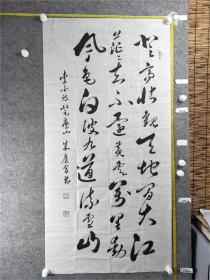 登高壮观天地间大江
茫茫去不还黄云万里动
风色白波九道流雪山
李白诗登庐山 朱